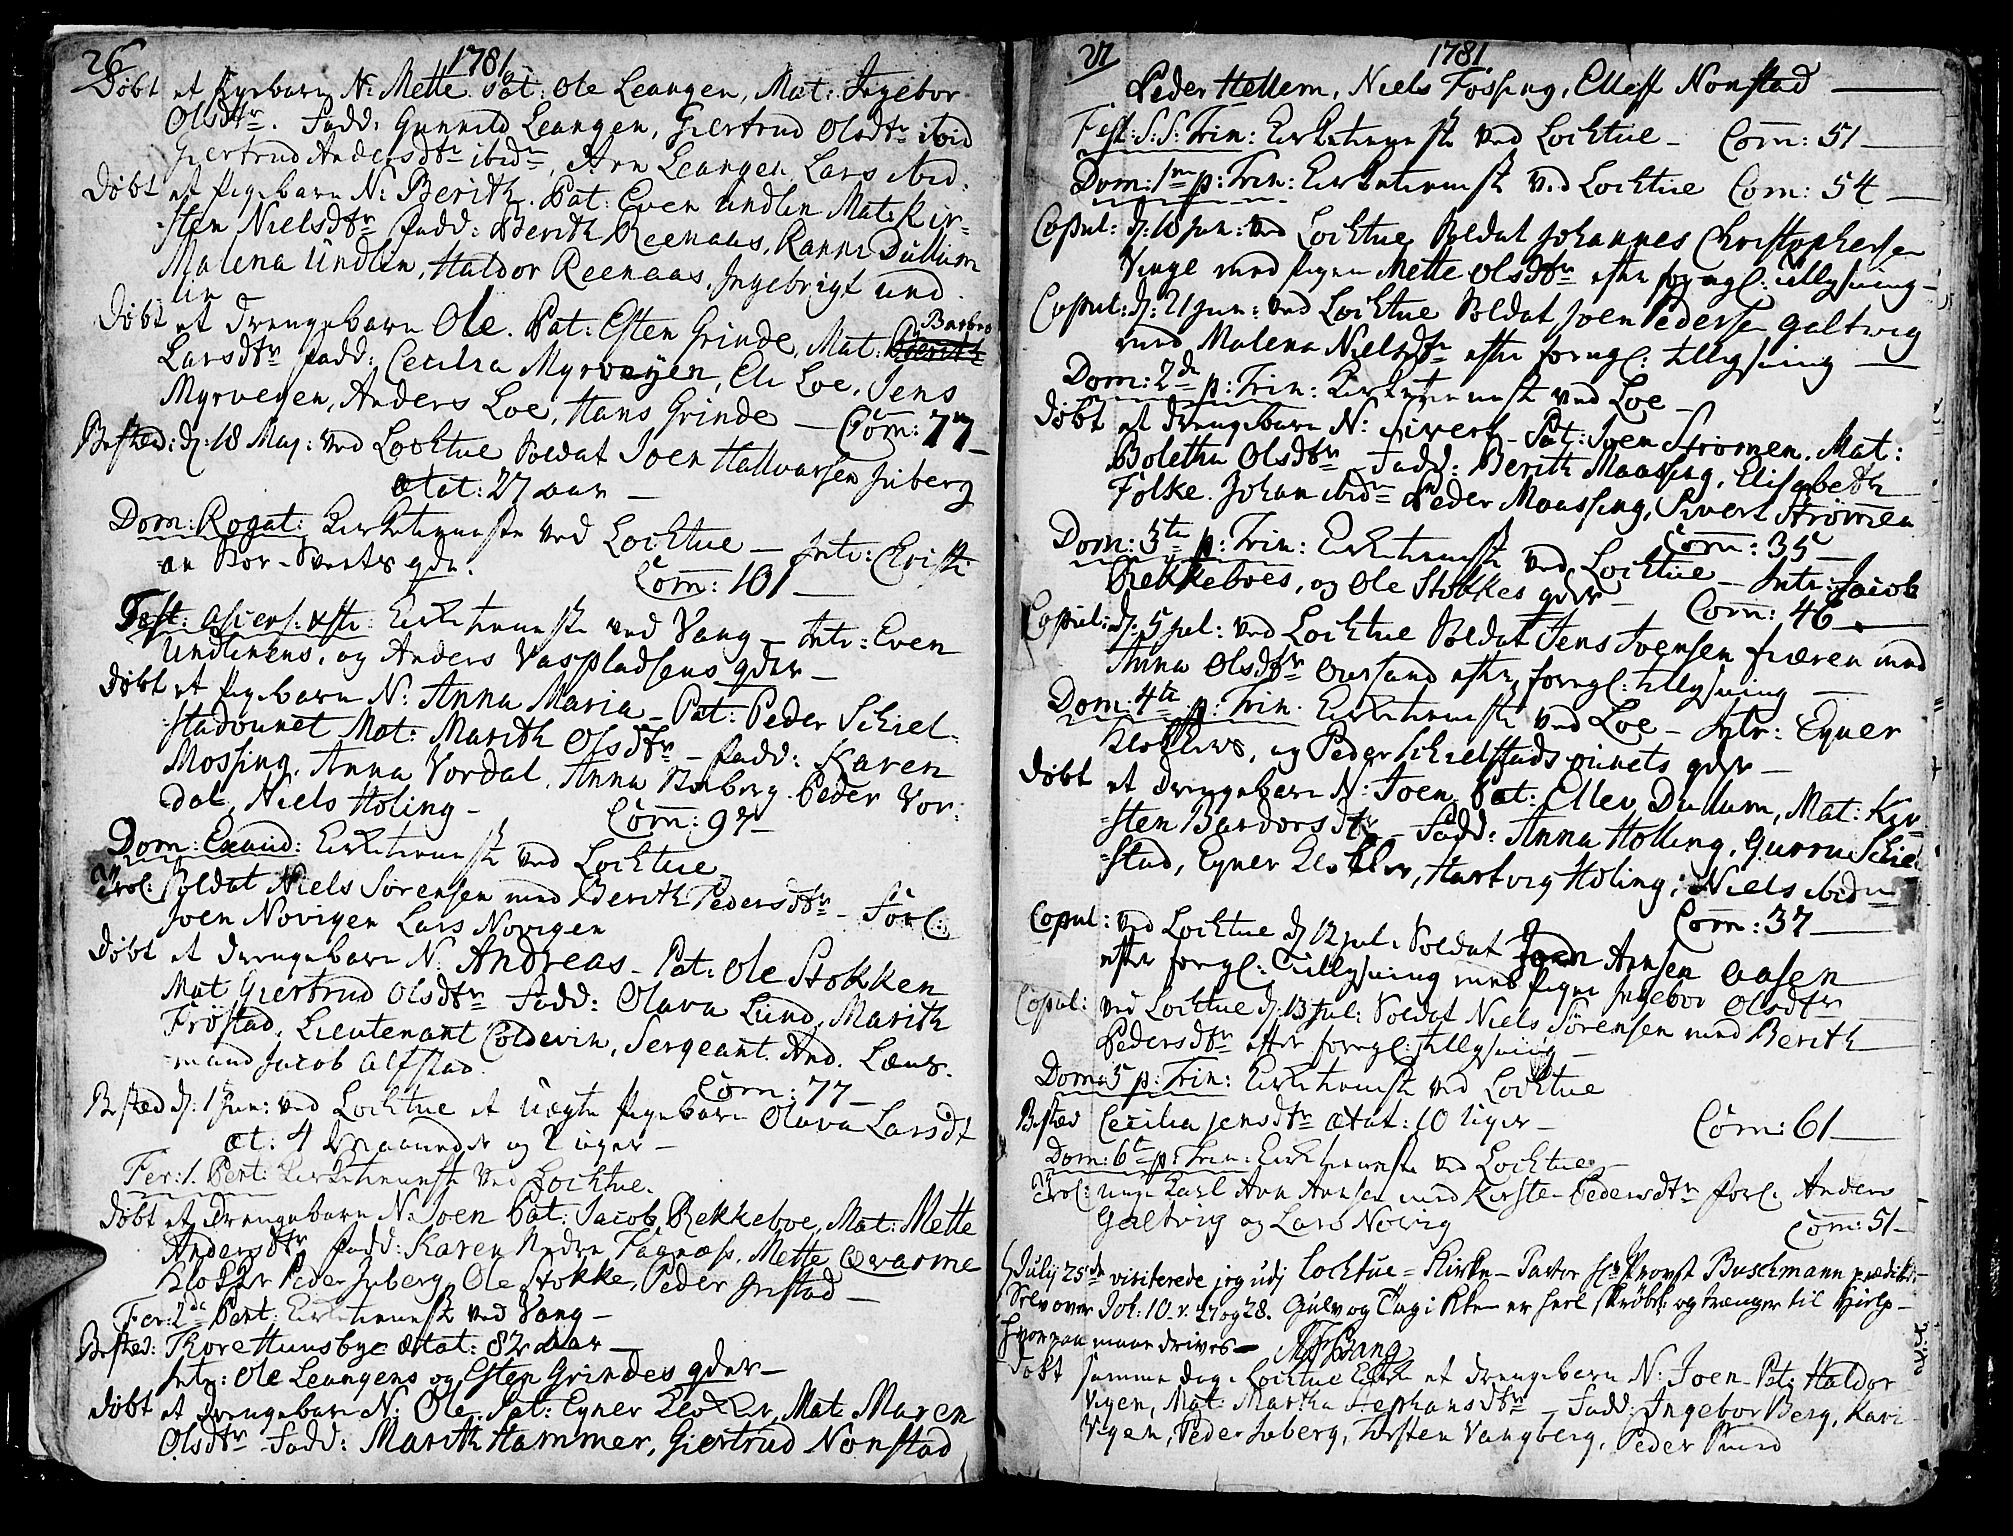 26 1781
Døbt et Pigebarn N: Mette. Pat: Ole Leangen, Mat: Ingebor
Olsdtr. Fadd: Gunnild Leangen, Giertrud Olsdtr ibid
Giertrud Andersdtr ibidm, Arn Leangen, Lars ibid:
Døbt et Pigebarn N: Berith. Pat: Even Undlin Mat: Kir-
sten Nielsdtr Fadd: Berith Reenaas, Ranni Dullum
Malena Undlin, Haldor Reenaas, Ingebrigt Und-
lin
Døbt et Drengebarn Ole. Pat: Esten Grinde, Mat: Berith Barbro
Larsdtr Fadd: Cecilia Myrvejen, Eli Loe, Jens
Myrvejen, Anders Loe, Hans Grinde — Com: 77
Bested: d: 18 Maj: ved Lochtue Soldat Joen Hallvarsen Inberg
ætat: 27 aar —
Dom: Rogat: Kirketienneste ved Lochtue — Intr: Christi-
an Stor-Svents qde.
Com: 101 —
Fest: Ascens: Xsti: Kirketienneste ved Vang — Intr: Even
Undlinens, og Anders Vaspladsens qder —
Døbt et Pigebarn N: Anna Maria — Pat: Peder Schiel-
stadounet Mat: Marith Olsdtr — Fadd: Karen
Mossing, Anna Vordal, Anna Inberg Peder Vor-
dal, Niels Holing — Com: 97 —
Dom: Exaud: Kirketienneste ved Lochtue
Trol: Soldat Niels Sörensen med Berith Pedersdtr — Forl:
Joen Novigen Lars Novigen
Døbt et Drengebarn N: Andreas — Pat: Ole Stokken
Mat Giertrud Olsdtr Fadd: Olava Lund, Marith
Frøstad, Lieutenant Coldevin, Sergeant And. Læns-
mand Jacob Alfstad.
Com: 77 —
Bested d: 1 Jun: ved Lochtue et Uægte Pigebarn Olava Larsdt
æt: 4 Maaneder og 2 Uger —
Fer: 1. Pent: Kirketienneste ved Lochtue.
Døbt et Drengebarn N: Joen Pat: Jacob Rekkeboe, Mat: Mette
Andersdtr Fadd: Karen Nedre Fagnæss, Mette Qvarme
Klokker Peder Inberg, Ole Stokke, Peder Instad —
Fer: 2de Pent: Kirketienneste ved Vang —
Bested: Thore Hunsbye ætat: 82 Aar —
Intr: Ole Leangens og Esten Grindes qder —
Døbt et Drengebarn N: Ole. Pat: Eyner Klokker, Mat: Maren
Olsdtr Fadd: Marith Hammer, Giertrud Nonstad
27 1781
Peder Hellem, Niels Fossing, Elleff Nonstad —
Fest: S: S: Trin: Kirketienneste ved Lochtue — Com: 51 —
Dom: 1m p: Trin: Kirketienneste ved Lochtue Com: 54 —
Copul: d: 18 Jun: ved Lochtue Soldat Johannes Christophersen
Vinge med Pigen Mette Olsdtr efter foregl: tillysning —
Copul: d: 21 Jun: ved Lochtue Soldat Joen Pedersen Galtvig
med Malena Nielsdtr efter foregl: tillysning —
Dom: 2de p: Trin: Kirketienneste ved Loe —
Døbt et Drengebarn N: Sivert — Pat: Joen Strömen, Mat:
Boletha Olsdtr — Fadd: Berith Maassing, Elisabeth
Folke. Johan ibidm Peder Maassing, Sivert Strömen
Com: 35 —
Dom: 3tie p: Trin: Kirketienneste ved Lochtue — Intr: Jacob
Rekkeboes, og Ole Stokkes qder —
Com: 46 —
Copul: d: 5 Jul: ved Lochtue Soldat Jens Joensen Fieren med
Anna Olsdtr Oursand efter foregl: tillysning —
Dom: 4te p: Trin. Kirketienneste ved Loe — Intr: Eyner
Klokkers, og Peder Schielstads ounets qder —
Døbt et Drengebarn N: Joen, Pat: Ellev Dullum, Mat: Kir-
sten Bardorsdtr — Fadd: Anna Holling, Guru Schiel-
stad, Eyner Klokker, Hartvig Holing, Niels ibidm
Com: 37 —
Copul: ved Lochtue d 12 Jul: Soldat Joen Arnsen Aasen
efter foregl: tillysning med Pigen Ingebor Olsdtr
Copul: ved Lochtue d: 13 Jul: Soldat Niels Sörensen med Berith
Pedersdtr efter foregl: tillysning —
Dom: 5 p: Trin: Kirketienneste ved Lochtue
Bested Cecilia Jensdtr ætat: 10 Uger — Com: 61 —
Dom: 6te p: Trin: Kirketienneste ved Lochtue —
Trol: unge Karl Arn Arnsen med Kirsten Pedersdtr forl: Anders
Galtvig og Lars Novig Com: 51 —
July 25de visiterede jeg udj Lochtue = Kirke — Pastor Hr Provst Buschmann prædike-
Selv over Joh: 10. v. 27 og 28. Gulv og Tag i Kirken er heel skrøbel: og trænger til Hielp —
hvorpaa maae drives — MFBang
Døbt samme dag i Lochtue Kirke et Drengebarn N: Joen — Pat: Haldor
Vigen, Mat: Martha Stephansdtr — Fadd: Ingebor Berg, Kari
Vigen, Peder Inberg, Torsten Vangberg, Peder